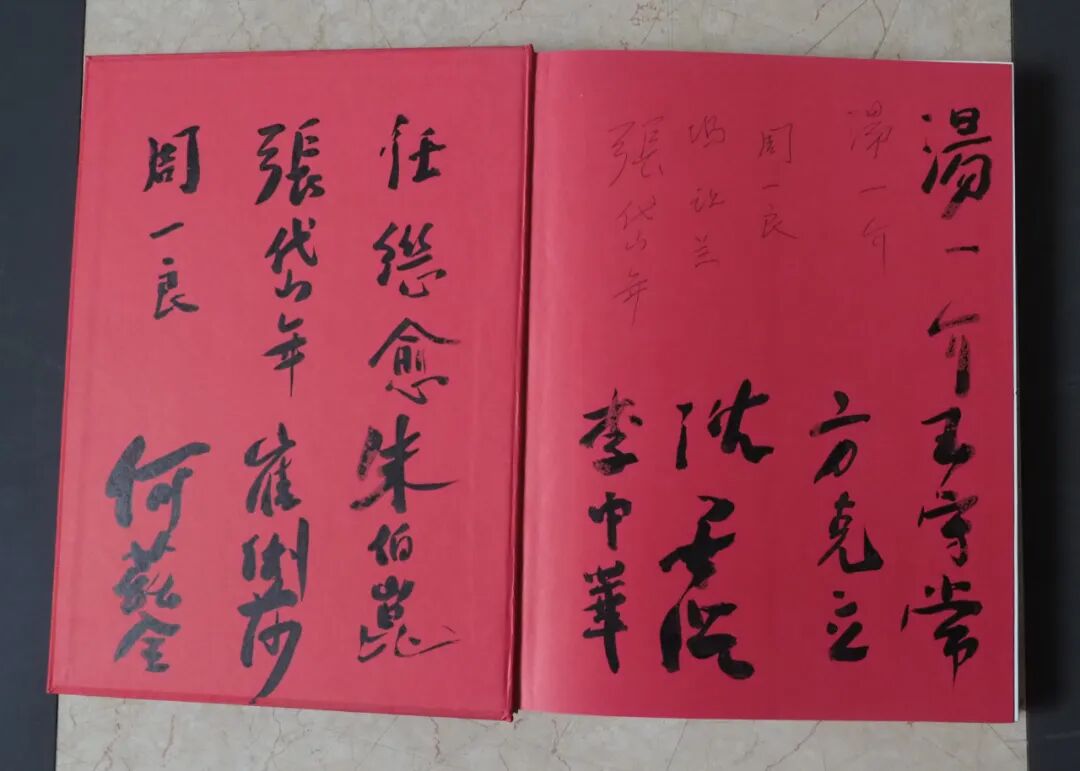 湯一介
王守常
湯一介
方克立
周一良
沈
張岱年
李中華
任繼愈
朱伯崑
張岱年
崔
周一良
何茲全